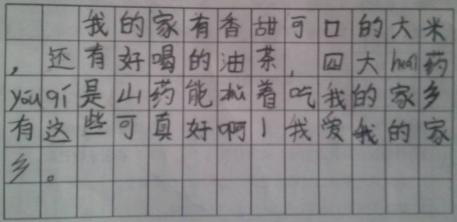 我的家有香甜可口的大米
，还有好喝的油茶，四大huái药
yóu qí是山药能松着吃我的家乡
有这些可真好啊！我爱我的家
乡。